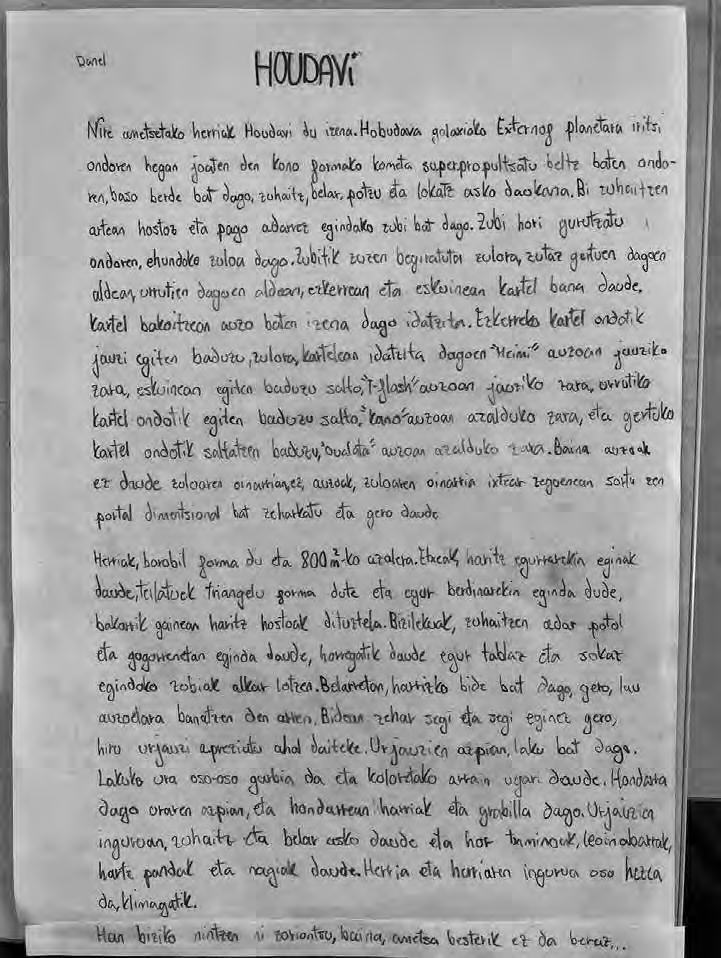 Danel
HOUDAVI
Nire ametsetako herriak Houdavi du izena. Hobudava galaxiako Externog planetara iritsi
ondoren hegan joaten den kono formako kometa superpropultsatu beltz baten ondo-
ren, baso berde bat dago, zuhaitz, belar, potzu eta lokatz asko daukana. Bi zuhaitzen
artean hostoz eta pago adarrez egindako zubi bat dago. Zubi hori gurutzatu
ondoren, ehundoko zuloa dago. Zubitik zuzen begiratuta zulora, zutaz gertuen dagoen
aldean, urrutien dagoen aldean, ezkerrean eta eskuinean kartel bana daude,
kartel bakoitzean auzo baten izena dago idatzita. Ezkerreko kartel ondotik
jauzi egiten baduzu, zulora, kartelean idatzita dagoen "Heimi" auzoan jauziko
zara, eskuinean egiten baduzu salto, "T-flash" auzoan jauziko zara, urrutiko
kartel ondotik egiten baduzu salto, "Kano" auzoan azalduko zara, eta gertuko
kartel ondotik saltatzen baduzu, "oualata" auzoan azalduko zara. Baina auzoak
ez daude zuloaren oinarrian, ez, auzoak, zuloaren oinarria ixtear zegoenean sortu zen
portal dimentsional bat zeharkatu eta gero daude
Herriak, borobil forma du eta 800 m²-ko azalera. Etxeak, haritz egurrarekin eginak
daude, teilatuek triangelu forma dute eta egur berdinarekin eginda dude,
bakarrik gainean haritz hostoak dituztela. Bizilekuak, zuhaitzen adar potol
eta gogorrenetan eginda daude, horregatik daude egur tablaz eta sokaz
egindoko zobiak alkar lotzen. Belarretan, harrizko bide bat dago, gero, lau
auzoetara banatzen den arren. Bidean zehar segi eta segi eginez gero,
hiru urjauzi apreziatu ahal daitezke. Urjauzien azpian, laku bat dago.
Lakuko ura oso-oso garbia da eta koloretako arrain ugari daude. Hondarra
dago uraren azpian, eta hondarrean harriak eta grabilla dago. Urjauzien
inguruan, zohaitz eta belar asko daude eta hor taminoak, leoinabarrak,
hartz pandak eta nagiak daude. Herria eta herriaren ingurua oso hezea
da, klimagatik.
Han biziko nintzen ni zoriontsu, baina, ametsa besterik ez da beraz...